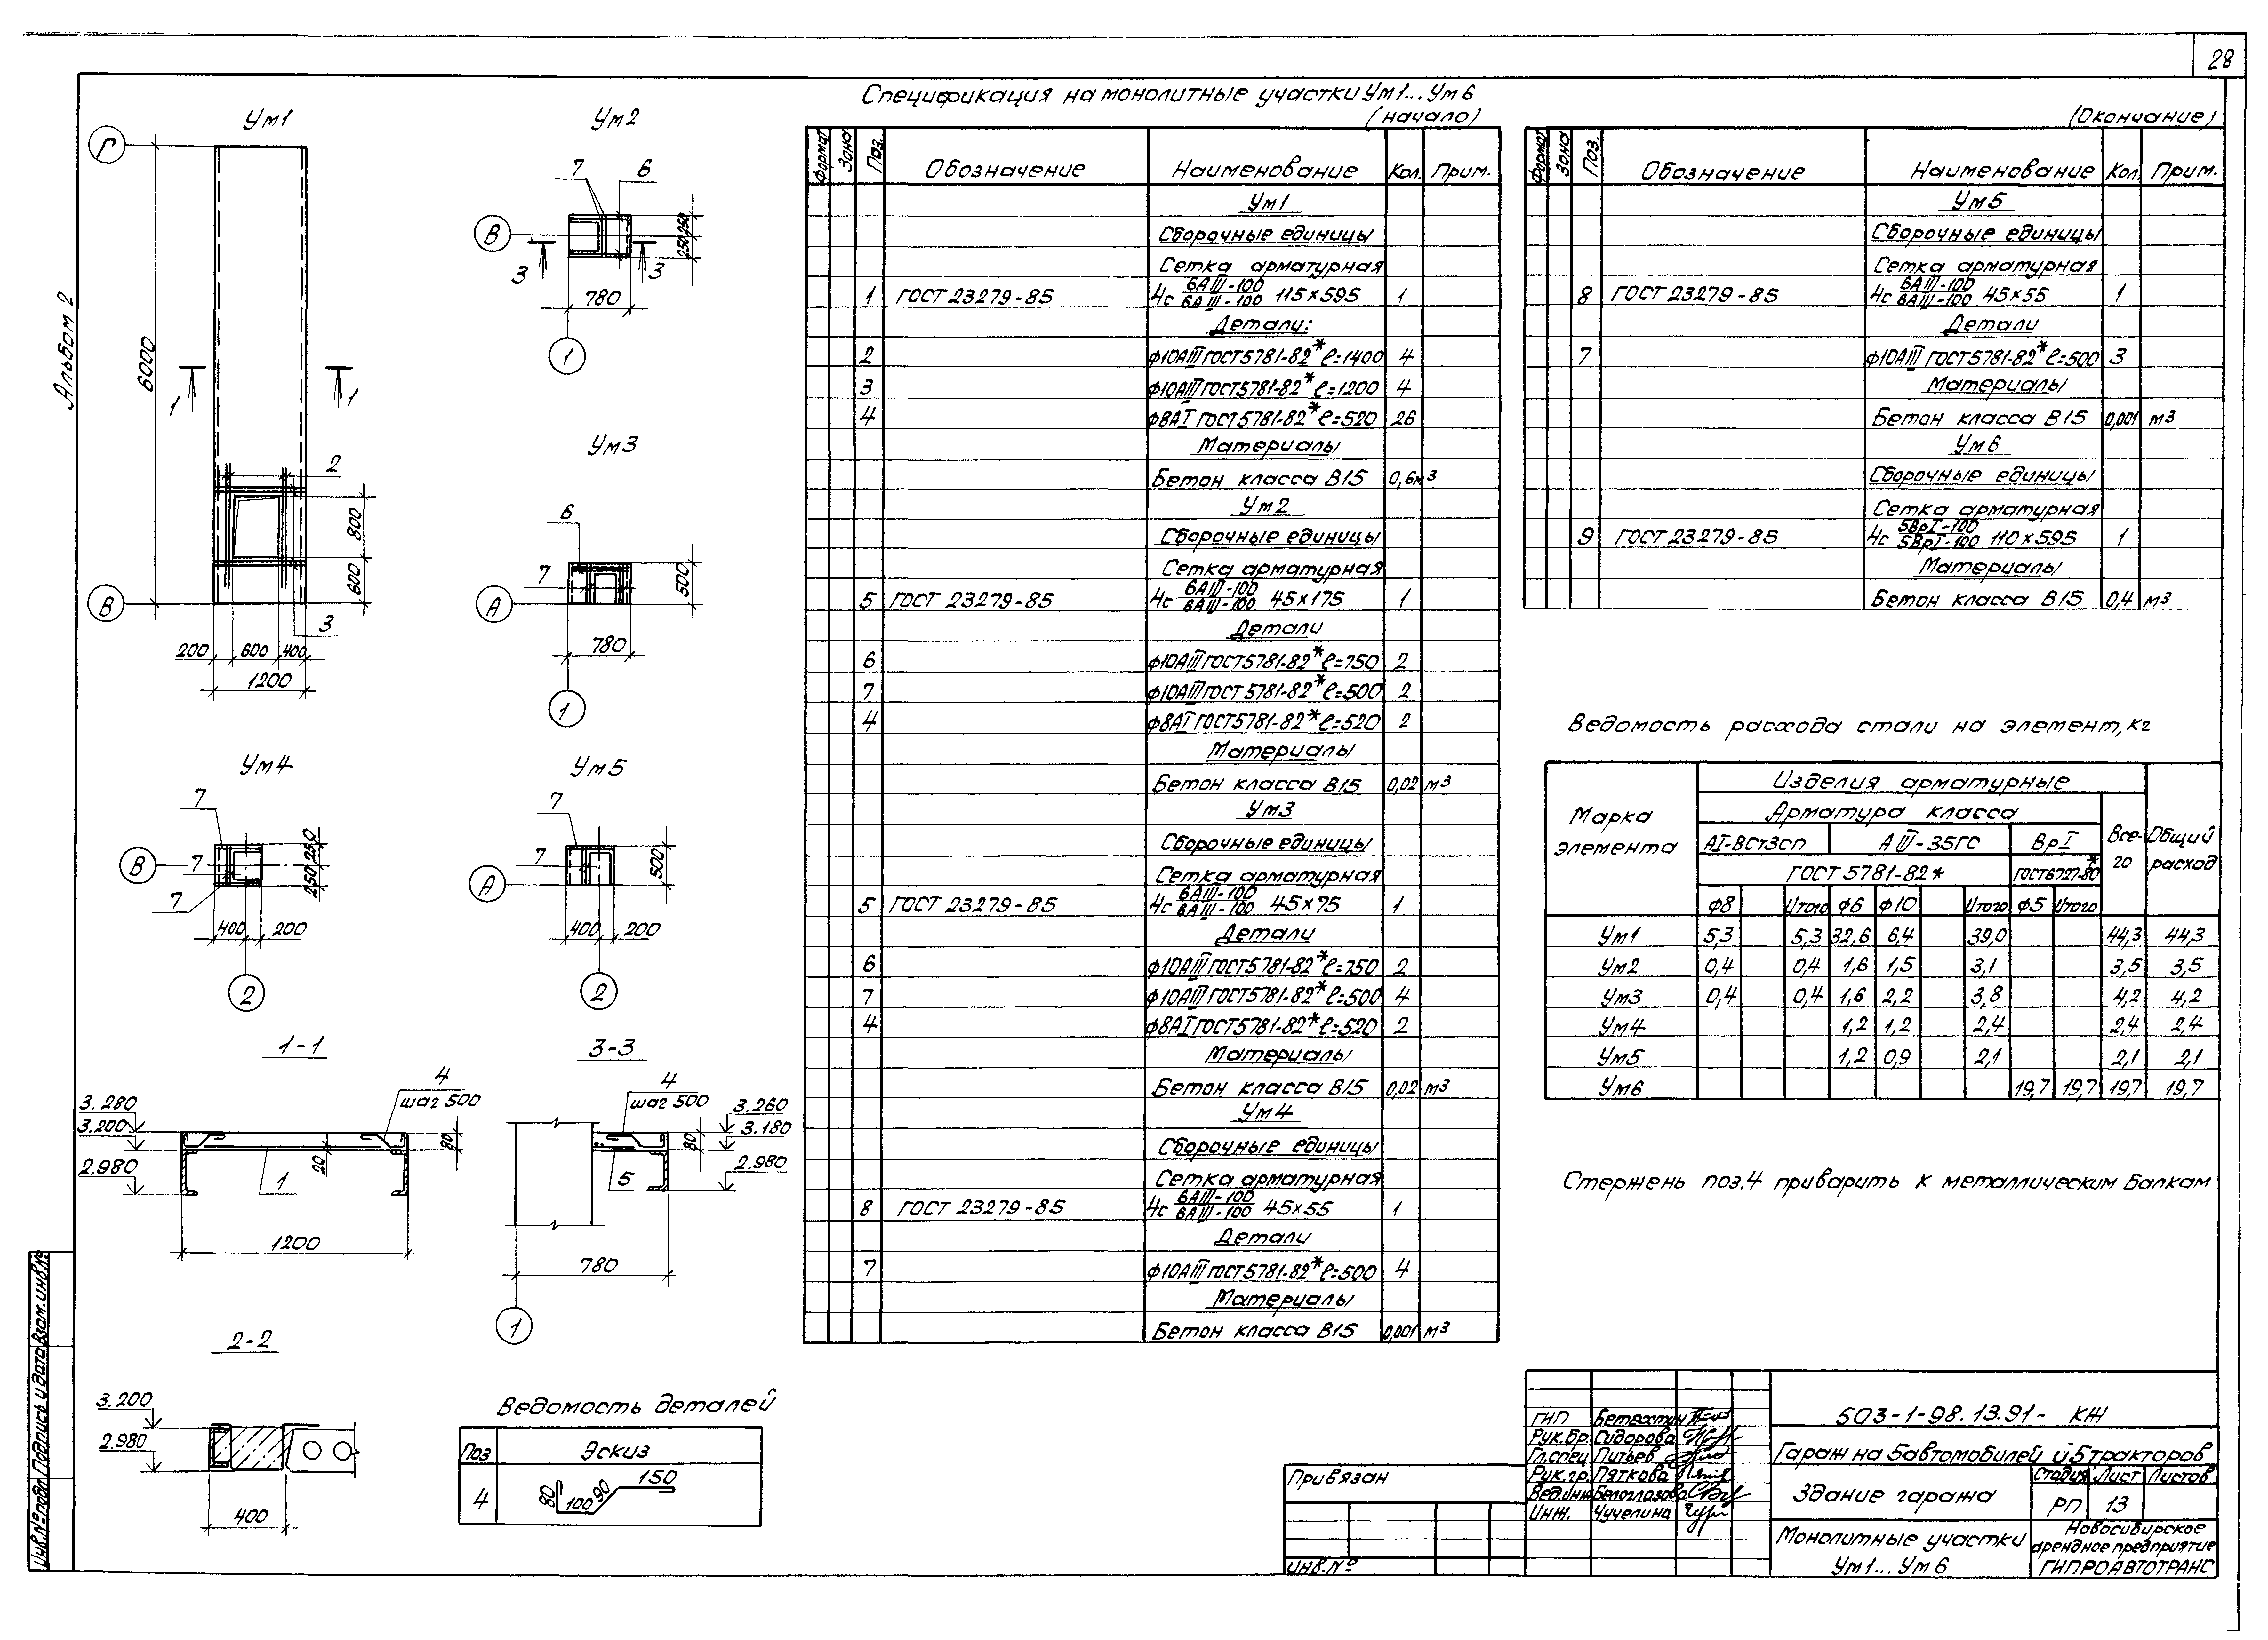 28
Альбом 2
Ум1
Г
6000
1
1
2
800
600
В
3
200
600
400
1200
Ум2
7
6
В
250
250
3
3
780
1
Ум3
6
7
А
500
780
1
Ум4
7
В
7
7
250
250
400
200
2
Ум5
7
7
А
500
400
200
2
1-1
3.280
3.200
2.980
4
шаг 500
80
20
1
1200
3-3
4
шаг 500
3.260
3.180
2.980
80
5
780
1
2-2
3.200
2.980
400
Ведомость деталей
Поз Эскиз
4 80 100 90 150
Спецификация на монолитные участки Ум1...Ум6
(начало)
Формат Зона Поз. Обозначение Наименование Кол. Прим.
Ум1
Сборочные единицы
Сетка арматурная
1 ГОСТ 23279-85 4с 6АIII-100/6АIII-100 115×595 1
Детали:
2 ф10АIII ГОСТ 5781-82* ℓ=1400 4
3 ф10АIII ГОСТ 5781-82* ℓ=1200 4
4 ф8АI ГОСТ 5781-82* ℓ=520 26
Материалы
Бетон класса В15 0,6м3
Ум2
Сборочные единицы
Сетка арматурная
5 ГОСТ 23279-85 4с 6АIII-100/6АIII-100 45×175 1
Детали
6 ф10АIII ГОСТ 5781-82* ℓ=750 2
7 ф10АIII ГОСТ 5781-82* ℓ=500 2
4 ф8АI ГОСТ 5781-82* ℓ=520 2
Материалы
Бетон класса В15 0,02 м3
Ум3
Сборочные единицы
Сетка арматурная
5 ГОСТ 23279-85 4с 6АIII-100/6АIII-100 45×75 1
Детали
6 ф10АIII ГОСТ 5781-82* ℓ=750 2
7 ф10АIII ГОСТ 5781-82* ℓ=500 4
4 ф8АI ГОСТ 5781-82* ℓ=520 2
Материалы
Бетон класса В15 0,02 м3
Ум4
Сборочные единицы
Сетка арматурная
8 ГОСТ 23279-85 4с 6АIII-100/6АIII-100 45×55 1
Детали
7 ф10АIII ГОСТ 5781-82* ℓ=500 4
Материалы
Бетон класса В15 0,001 м3
(Окончание)
Формат Зона Поз. Обозначение Наименование Кол. Прим.
Ум5
Сборочные единицы
Сетка арматурная
8 ГОСТ 23279-85 4с 6АIII-100/6АIII-100 45×55 1
Детали
7 ф10АIII ГОСТ 5781-82* ℓ=500 3
Материалы
Бетон класса В15 0,001 м3
Ум6
Сборочные единицы
Сетка арматурная
9 ГОСТ 23279-85 4с 5ВрI-100/5ВрI-100 110×595 1
Материалы
Бетон класса В15 0,4 м3
Ведомость расхода стали на элемент, кг
Марка элемента Изделия арматурные Общий расход
Арматура класса Все-го
АI-ВСт3сп АIII-35ГС ВрI
ГОСТ 5781-82* ГОСТ 6727-80*
ф8 Итого ф6 ф10 Итого ф5 Итого
Ум1 5,3 5,3 32,6 6,4 39,0 44,3 44,3
Ум2 0,4 0,4 1,6 1,5 3,1 3,5 3,5
Ум3 0,4 0,4 1,6 2,2 3,8 4,2 4,2
Ум4 1,2 1,2 2,4 2,4 2,4
Ум5 1,2 0,9 2,1 2,1 2,1
Ум6 19,7 19,7 19,7 19,7
Стержень поз.4 приварить к металлическим балкам
Привязан
Инв.№
ГИП Бетехтин
Рук.бр. Сидорова
Гл.спец Питьев
Рук.гр. Пяткова
Вед.инж Белоглазова
Инж. Чучелина
503-1-98.13.91- КЖ
Гараж на 5 автомобилей и 5 тракторов
Здание гаража
Стадия Лист Листов
РП 13
Монолитные участки
Ум1...Ум6
Новосибирское
арендное предприятие
ГИПРОАВТОТРАНС
Инв.№подл. Подпись и дата Взам.инв.№